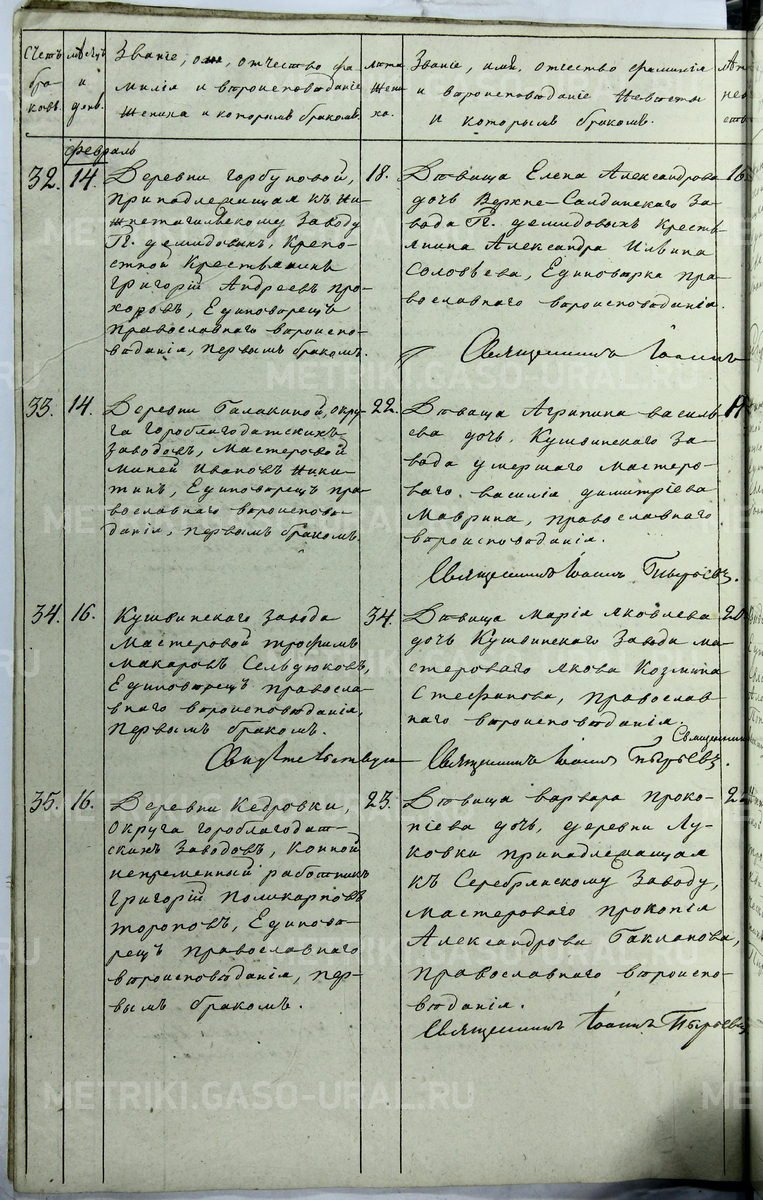 Счетъ браковъ.
мѣсяцъ и день.
Званіе, имя, отчество фа-
милія и вѣроисповѣданіе
жениха и которымъ бракомъ.
Лѣта
жени-
ха.
Званіе, имя, отчество фамилія
и вѣроисповѣданіе невѣсты
и которымъ бракомъ.
февраль
32. 14.
Деревни Горбуновой,
принадлежащая къ Ни-
жнетагильскому заводу
Гг. Демидовыхъ, крепо-
стной крестьянинъ
Григорій Андреевъ Про-
хоровъ, Единоверецъ
Православнаго вѣроиспо-
вѣданія, первымъ бракомъ.
18.
Дѣвица Елена Александрова
дочь Верхне-Салдинскаго За-
вода Гг. Демидовыхъ кресть-
янина Александра Ильина
Соловьева, Единоверка пра-
вославнаго вѣроисповѣданія.
16
Священникъ Іоаннъ
33. 14.
Деревни Балакиной, окру-
га Гороблагодатскихъ
заводовъ, Мастеровой
Миней Ивановъ Ники-
тинъ, Единоверецъ пра-
вославнаго вѣроиспове-
данія, первымъ бракомъ.
22.
Дѣвица Агрипина Василь-
ева дочь, Кушвинскаго За-
вода умершаго мастеро-
ваго Василія Димитріева
Маврина, православнаго
вѣроисповѣданія.
Священникъ Іоаннъ Пырьевъ.
34. 16.
Кушвинскаго Завода
Мастеровой Трофимъ
Макаровъ Сельдюковъ,
Единоверецъ православ-
наго вѣроисповѣданія,
первымъ бракомъ.
34.
Дѣвица Марія Яковлева
дочь Кушвинскаго Завода ма-
стероваго Якова Козмина
Стефанова, православ-
наго вѣроисповѣданія.
20.
Свидетельствую
Священникъ
Священникъ Іоаннъ Пырьевъ.
35. 16.
Деревни Кедровки,
Округа Гороблагодат-
скихъ Заводовъ, Конной
непременный работникъ
Григорій Поликарповъ
Тороповъ, Единове-
рецъ православнаго
вѣроисповѣданія, пер-
вымъ бракомъ.
23.
Дѣвица Варвара Проко-
піева дочь, деревни Лу-
ковки принадлежащая
къ Серебрянскому Заводу,
мастероваго Прокопія
Александрова Бакланова,
Православнаго вѣроиспо-
вѣданія.
Священникъ Іоаннъ Пырьевъ
METRIKI.GASO-URAL.RU
METRIKI.GASO-URAL.RU
METRIKI.GASO-URAL.RU
METRIKI.GASO-URAL.RU
METRIKI.GASO-URAL.RU
METRIKI.GASO-URAL.RU